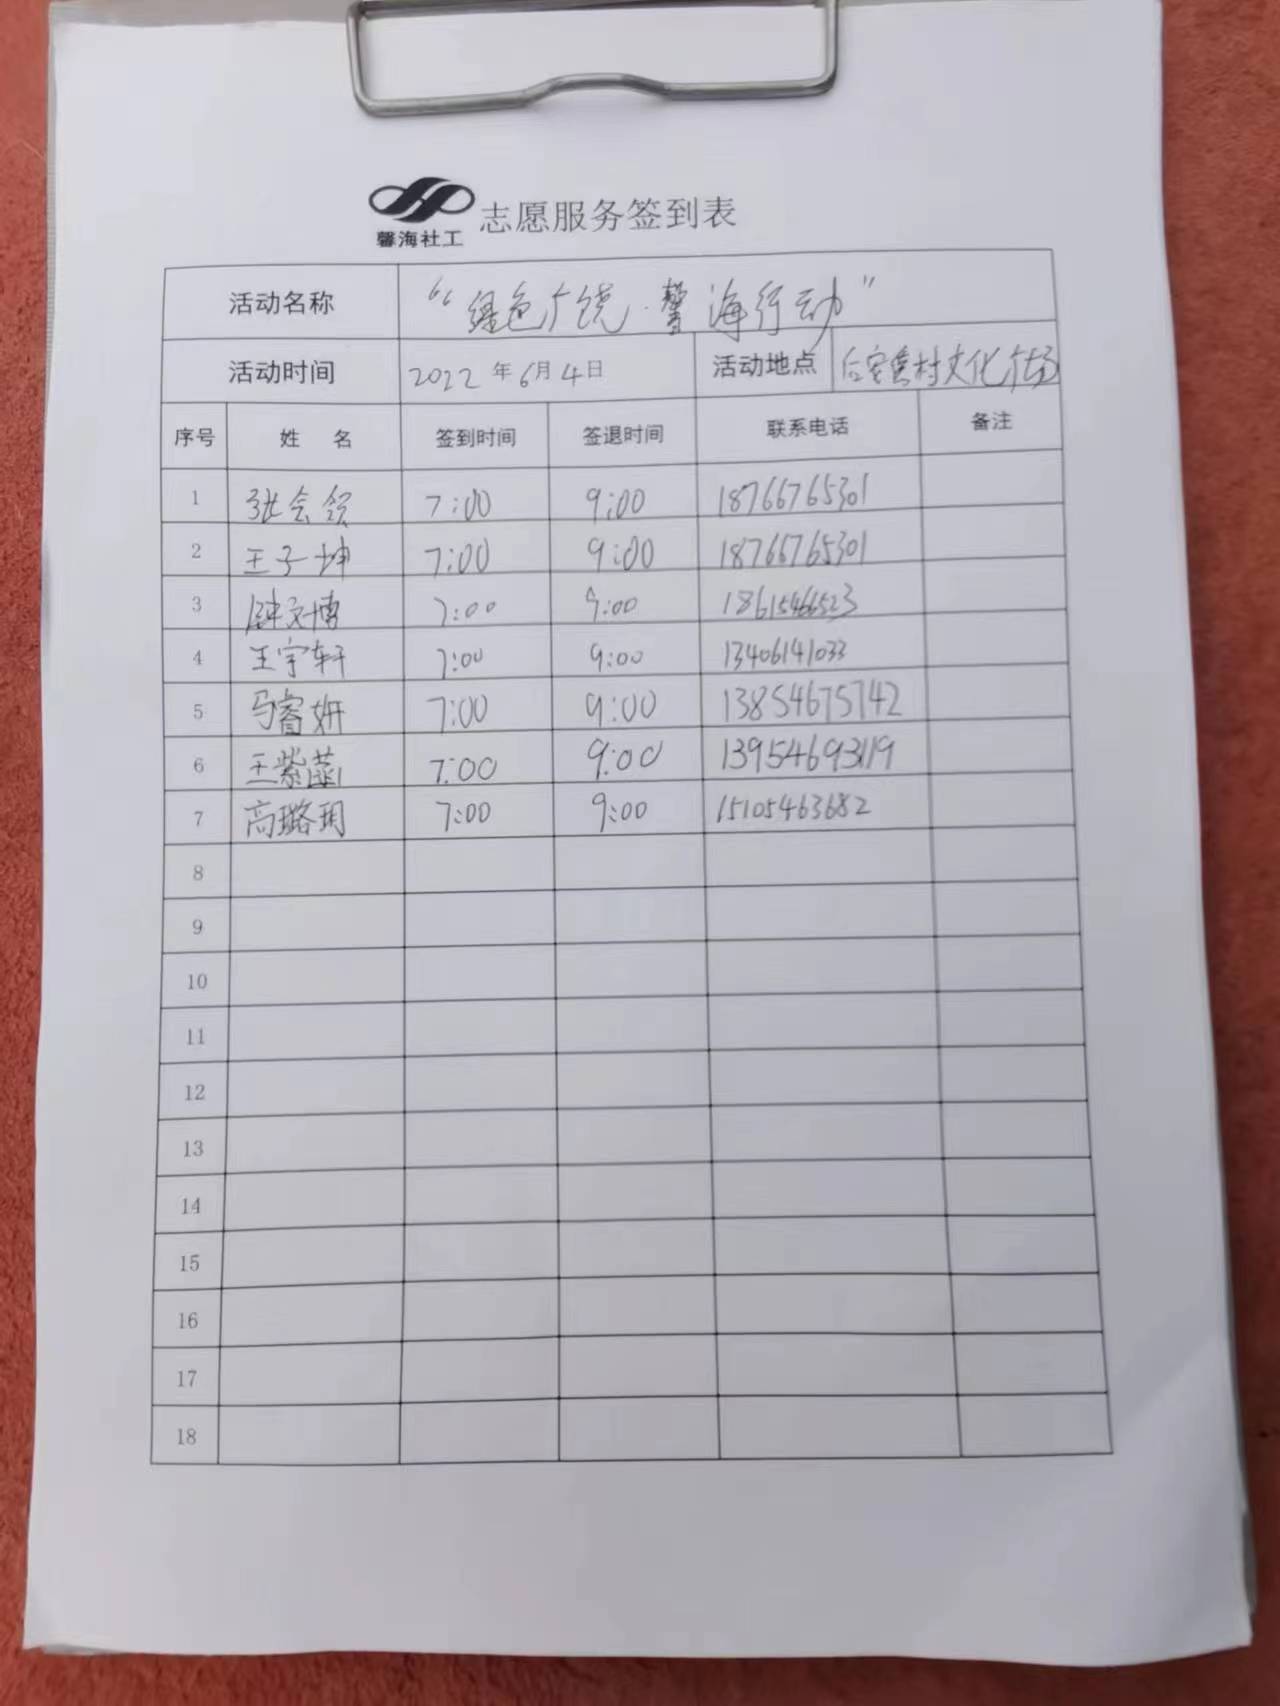 馨海社工 志愿服务签到表
活动名称 “绿色广饶·馨海行动”
活动时间 2022年6月4日 活动地点 村文化广场
序号 姓 名 签到时间 签退时间 联系电话 备注
1 张会领 7:00 9:00 18766765301
2 王子坤 7:00 9:00 18766765301
3 文博 7:00 9:00 18615466523
4 王宇轩 7:00 9:00 13406141033
5 马睿妍 7:00 9:00 13854675742
6 王紫涵 7:00 9:00 13954693119
7 高璐玥 7:00 9:00 15105463682
8
9
10
11
12
13
14
15
16
17
18